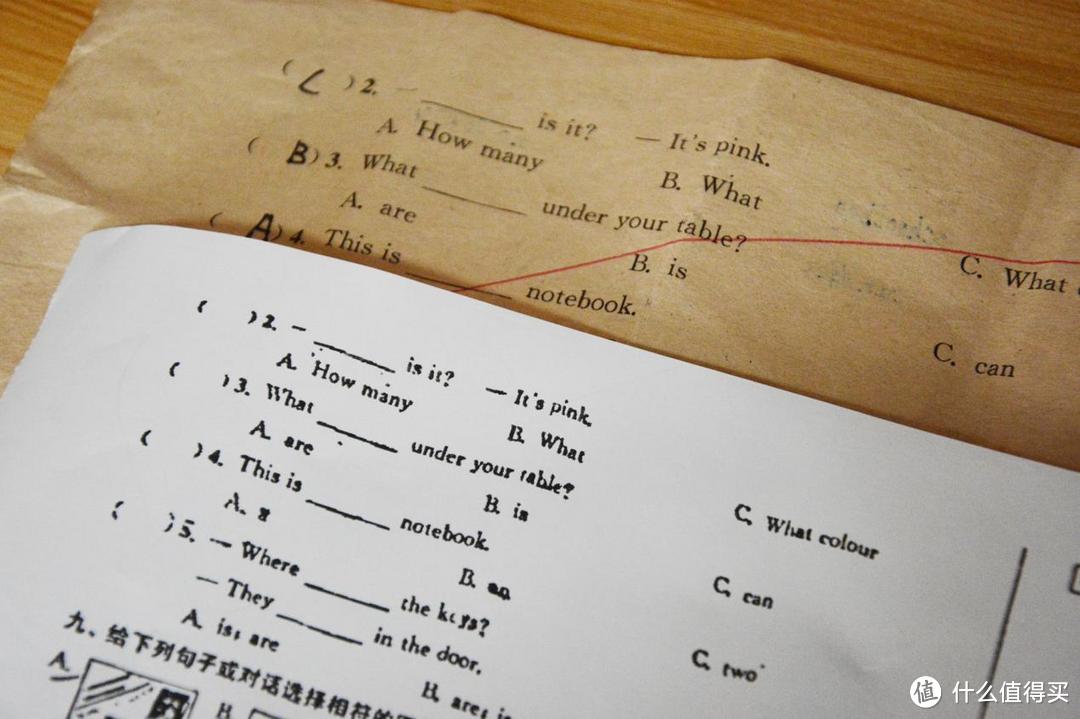 ( C ) 2. — ______ is it? — It's pink.
A. How many B. What C. What
( B ) 3. What ______ under your table?
A. are B. is C. can
( A ) 4. This is ______ notebook.
( ) 2. — ______ is it? — It's pink.
A. How many B. What C. What colour
( ) 3. What ______ under your table?
A. are B. is C. can
( ) 4. This is ______ notebook.
A. a B. an C. two
( ) 5. — Where ______ the keys?
— They ______ in the door.
A. is; are B. are;
九、给下列句子或对话选择相符的
A. B.
值 什么值得买